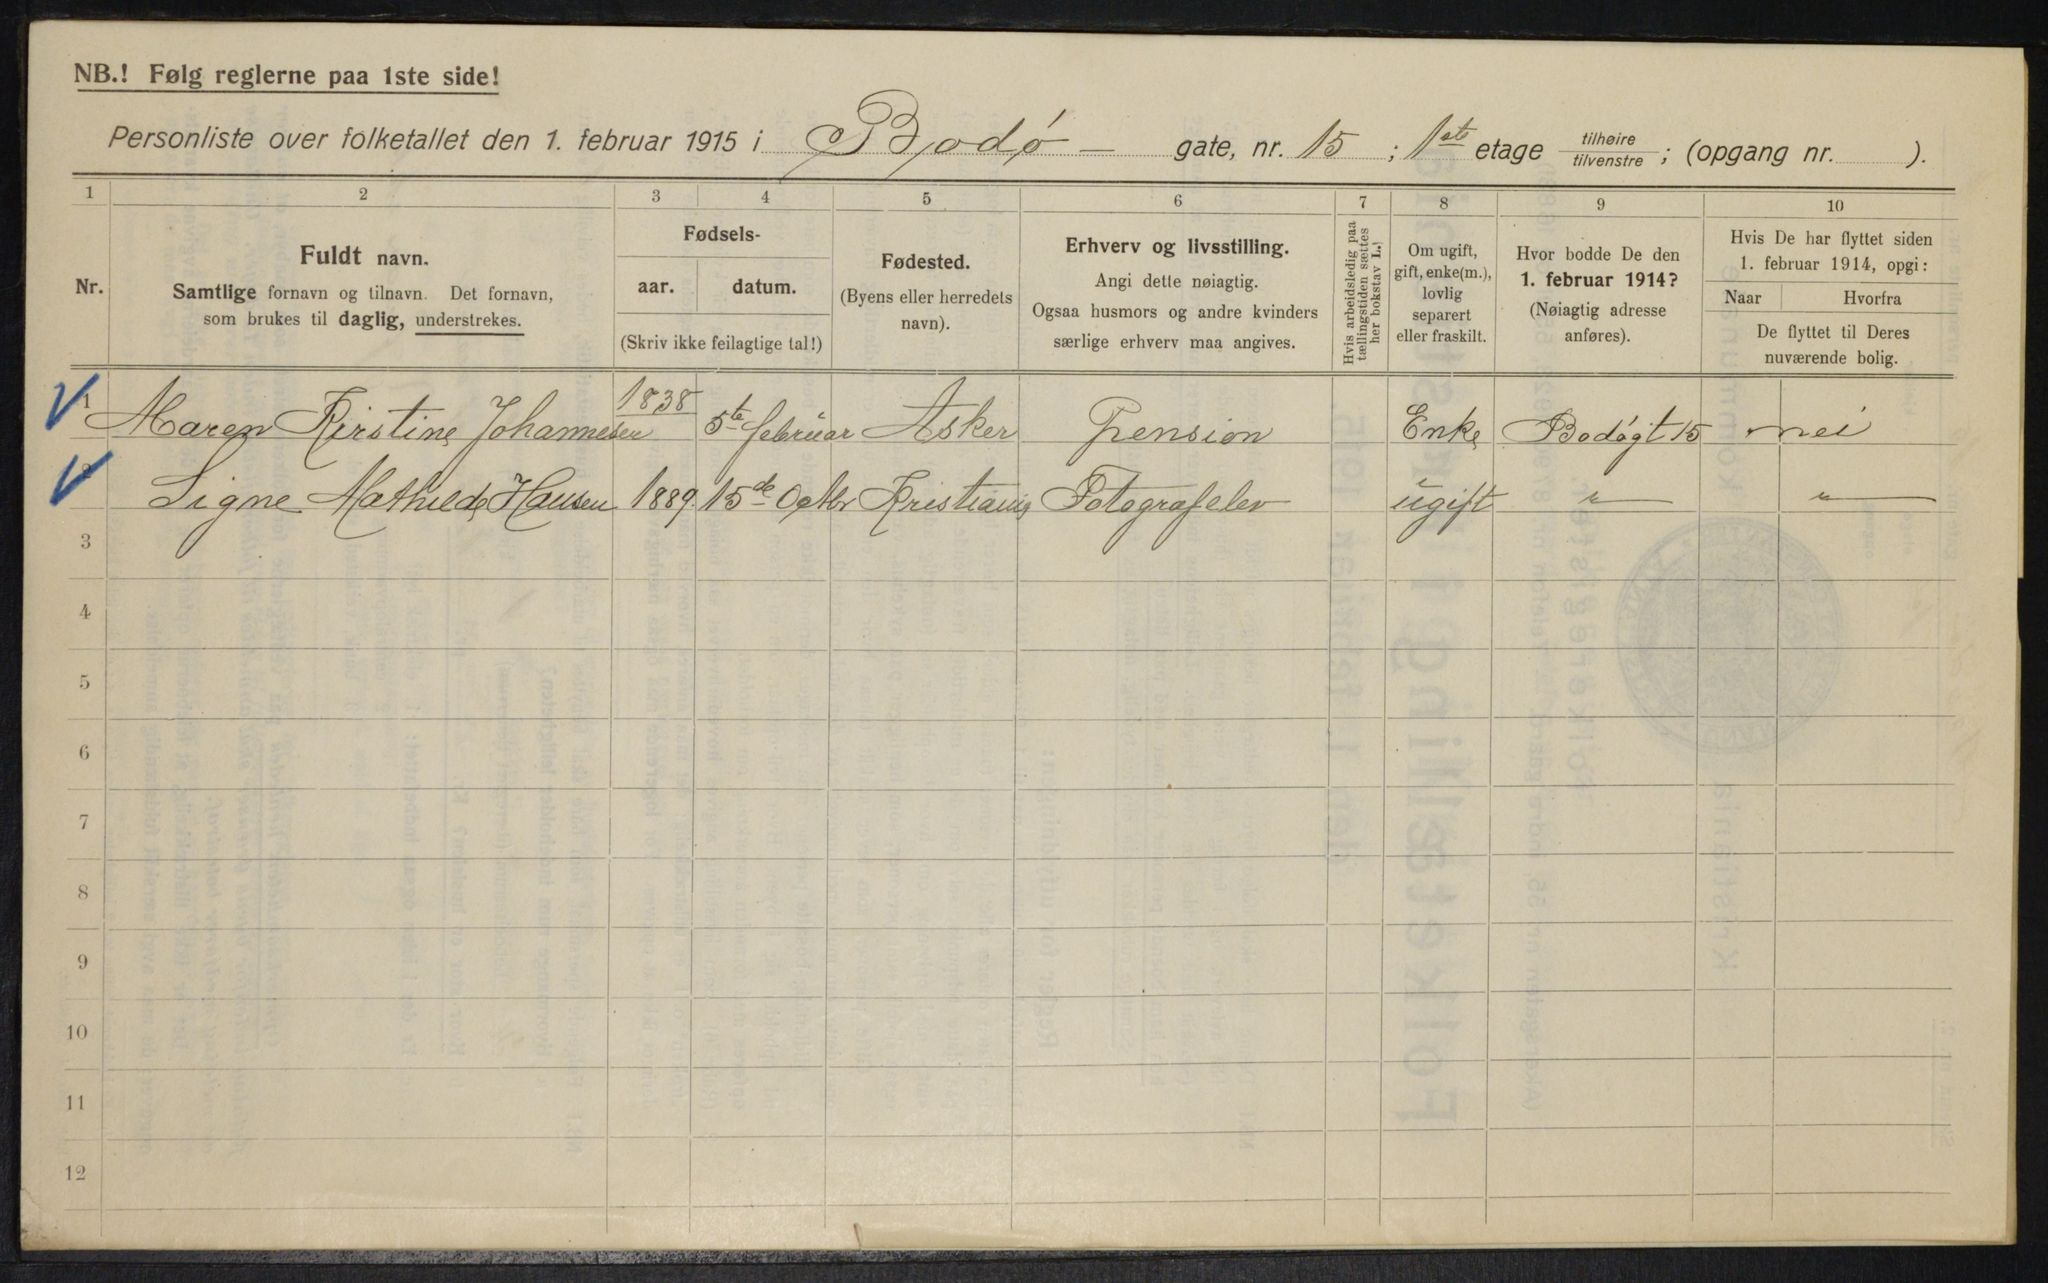 NB.! Følg reglerne paa 1ste side!
Personliste over folketallet den 1. februar 1915 i Bodø - gate, nr. 15 ; 1ste etage tilhøire / tilvenstre ; (opgang nr. ).
1 2 3 4 5 6 7 8 9 10
Nr.
Fuldt navn.
Samtlige fornavn og tilnavn. Det fornavn,
som brukes til daglig, understrekes.
Fødsels-
aar. datum.
(Skriv ikke feilagtige tal!)
Fødested.
(Byens eller herredets
navn).
Erhverv og livsstilling.
Angi dette nøiagtig.
Ogsaa husmors og andre kvinders
særlige erhverv maa angives.
Hvis arbeidsledig paa
tællingstiden sættes
her bokstav L.
Om ugift,
gift, enke(m.),
lovlig
separert
eller fraskilt.
Hvor bodde De den
1. februar 1914?
(Nøiagtig adresse
anføres).
Hvis De har flyttet siden
1. februar 1914, opgi:
Naar Hvorfra
De flyttet til Deres
nuværende bolig.
1 Maren Kirstine Johannesen 1838 5te februar Asker Pension Enke Bodøgt 15 nei
2 Signe Mathilde Hansen 1889 15de Octbr Kristiania Fotografelev ugift " "
3
4
5
6
7
8
9
10
11
12